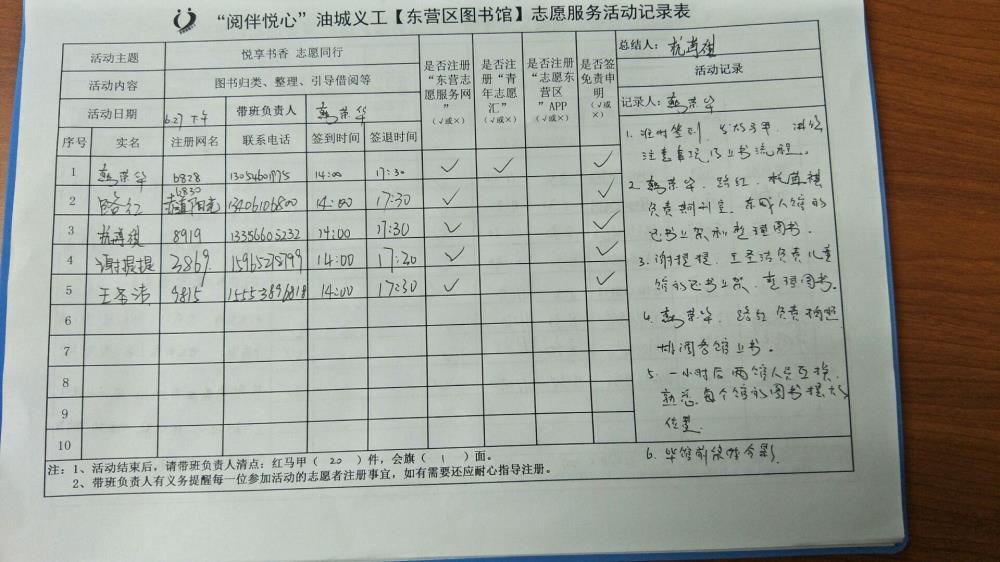 “阅伴悦心”油城义工【东营区图书馆】志愿服务活动记录表
活动主题 悦享书香 志愿同行
活动内容 图书归类、整理、引导借阅等
活动日期 6.27 下午 带班负责人 荣华
是否注册“东营志愿服务网”（√或×）
是否注册“青年志愿汇”（√或×）
是否注册“志愿东营区”APP（√或×）
是否签免责申明（√或×）
总结人：
活动记录
记录人：荣华
序号 实名 注册网名 联系电话 签到时间 签退时间
1 荣华 6828 13054601975 14:00 17:30 √ √ √
2 路红 6830 阳光 13406106800 14:00 17:30 √ √
3 8919 13356605232 14:00 17:30 √ √
4 谢提提 3869 14:00 17:30 √ √
5 王圣洁 9815 15553896818 14:00 17:30 √ √
6
7
8
9
10
1. 准时签到，发放马甲，讲经
注意事项及上书流程。
2. 荣华、路红、
负责期刊室、人馆的
还书上架和整理图书。
3. 谢提提、王圣洁负责儿童
馆的还书上架、整理图书。
4. 荣华、路红负责拍照
书。
5. 一小时后两馆人员互换，
熟悉每个馆的图书摆放
位置。
6. 合影
注：1、活动结束后，请带班负责人清点：红马甲（ 20 ）件，会旗（ 1 ）面。
2、带班负责人有义务提醒每一位参加活动的志愿者注册事宜，如有需要还应耐心指导注册。